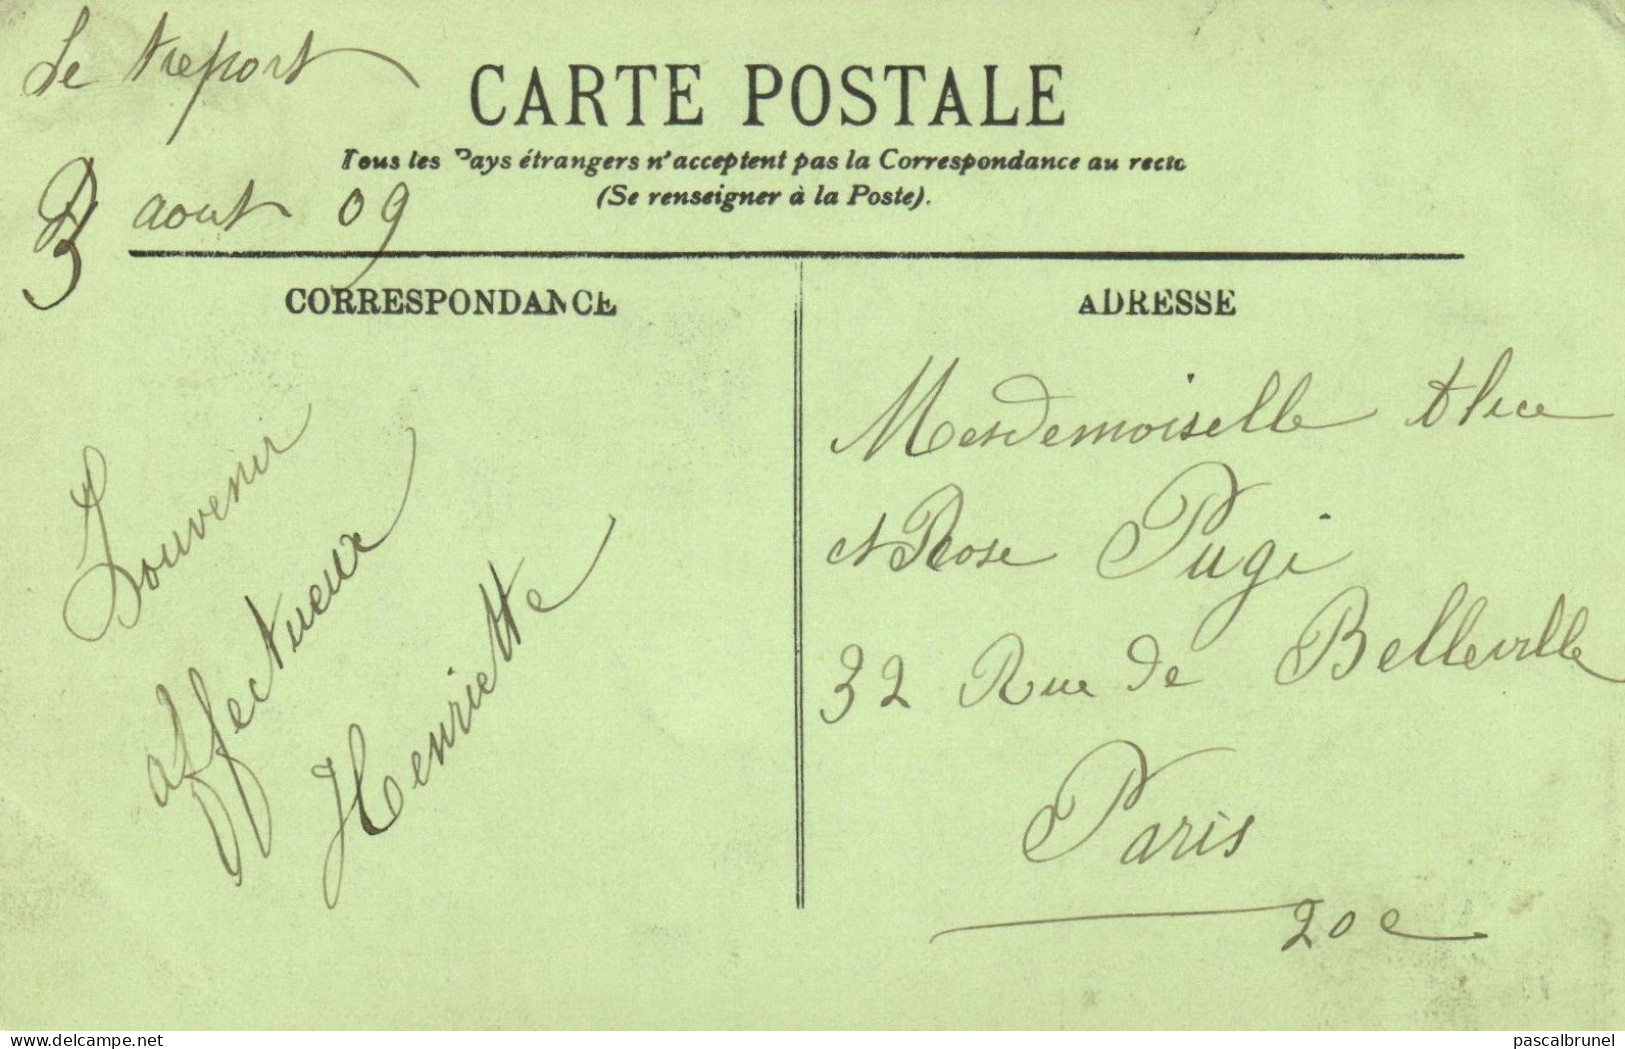 Le treport
3 aout 09
CARTE POSTALE
Tous les Pays étrangers n'acceptent pas la Correspondance au recto
(Se renseigner à la Poste).
CORRESPONDANCE
Souvenir
affectueux
Henriette
ADRESSE
Mesdemoiselle Alice
et Rose Pugi
32 Rue de Belleville
Paris
20e
delcampe.net
pascalbrunel